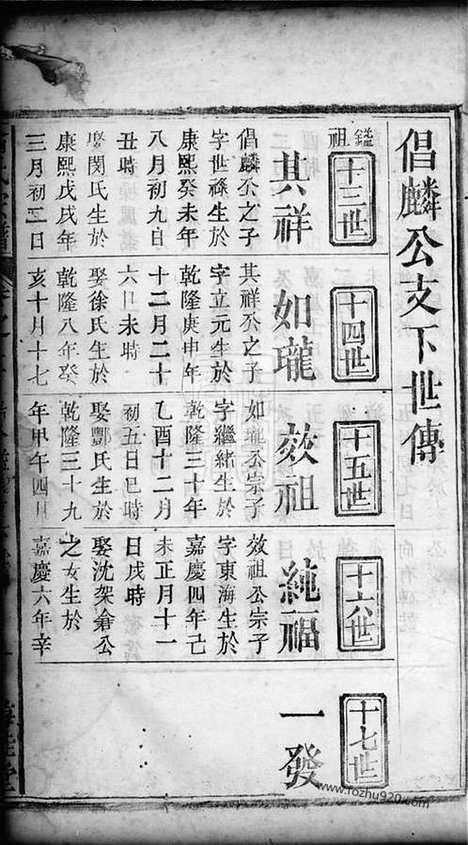 倡麟公支下世傳
鎰祖
十三世
其祥
倡麟公之子
字世祿生於
康熙癸未年
八月初九日
丑時
娶閔氏生於
康熙戊戌年
三月初二日
十四世
如瓏
其祥公之子
字立元生於
乾隆庚申年
十二月二十
六日未時
娶徐氏生於
乾隆八年癸
亥十月十七
十五世
效祖
如瓏公宗子
字繼緒生於
乾隆三十年
乙酉十二月
初五日巳時
娶酈氏生於
乾隆三十九
年甲午四月
十六世
純福
效祖公宗子
字東海生於
嘉慶四年己
未正月十一
日戌時
娶沈架侖公
之女生於
嘉慶六年辛
十七世
一發
www.fozhu920.com